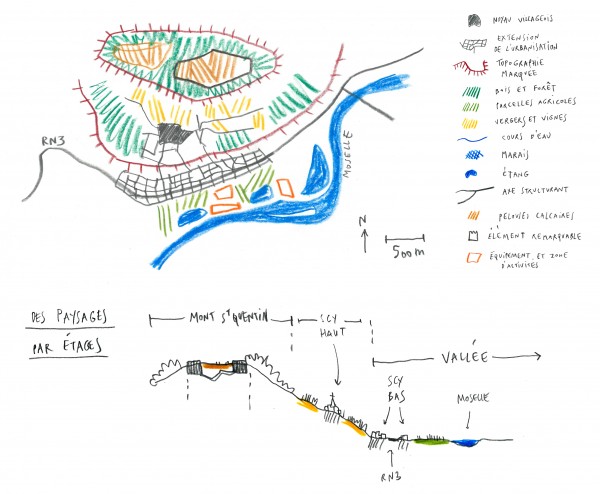 RN3
MOSELLE
N
500m
NOYAU VILLAGEOIS
EXTENSION
DE L'URBANISATION
TOPOGRAPHIE
MARQUEE
BOIS ET FORÊT
PARCELLES AGRICOLES
VERGERS ET VIGNES
COURS D'EAU
MARAIS
ÉTANG
AXE STRUCTURANT
PELOUSES CALCAIRES
ÉLÉMENT REMARQUABLE
ÉQUIPEMENT ET ZONE
D'ACTIVITÉS
DES PAYSAGES
PAR ÉTAGES
MONT ST QUENTIN
SCY
HAUT
VALLÉE
SCY
BAS
MOSELLE
RN3